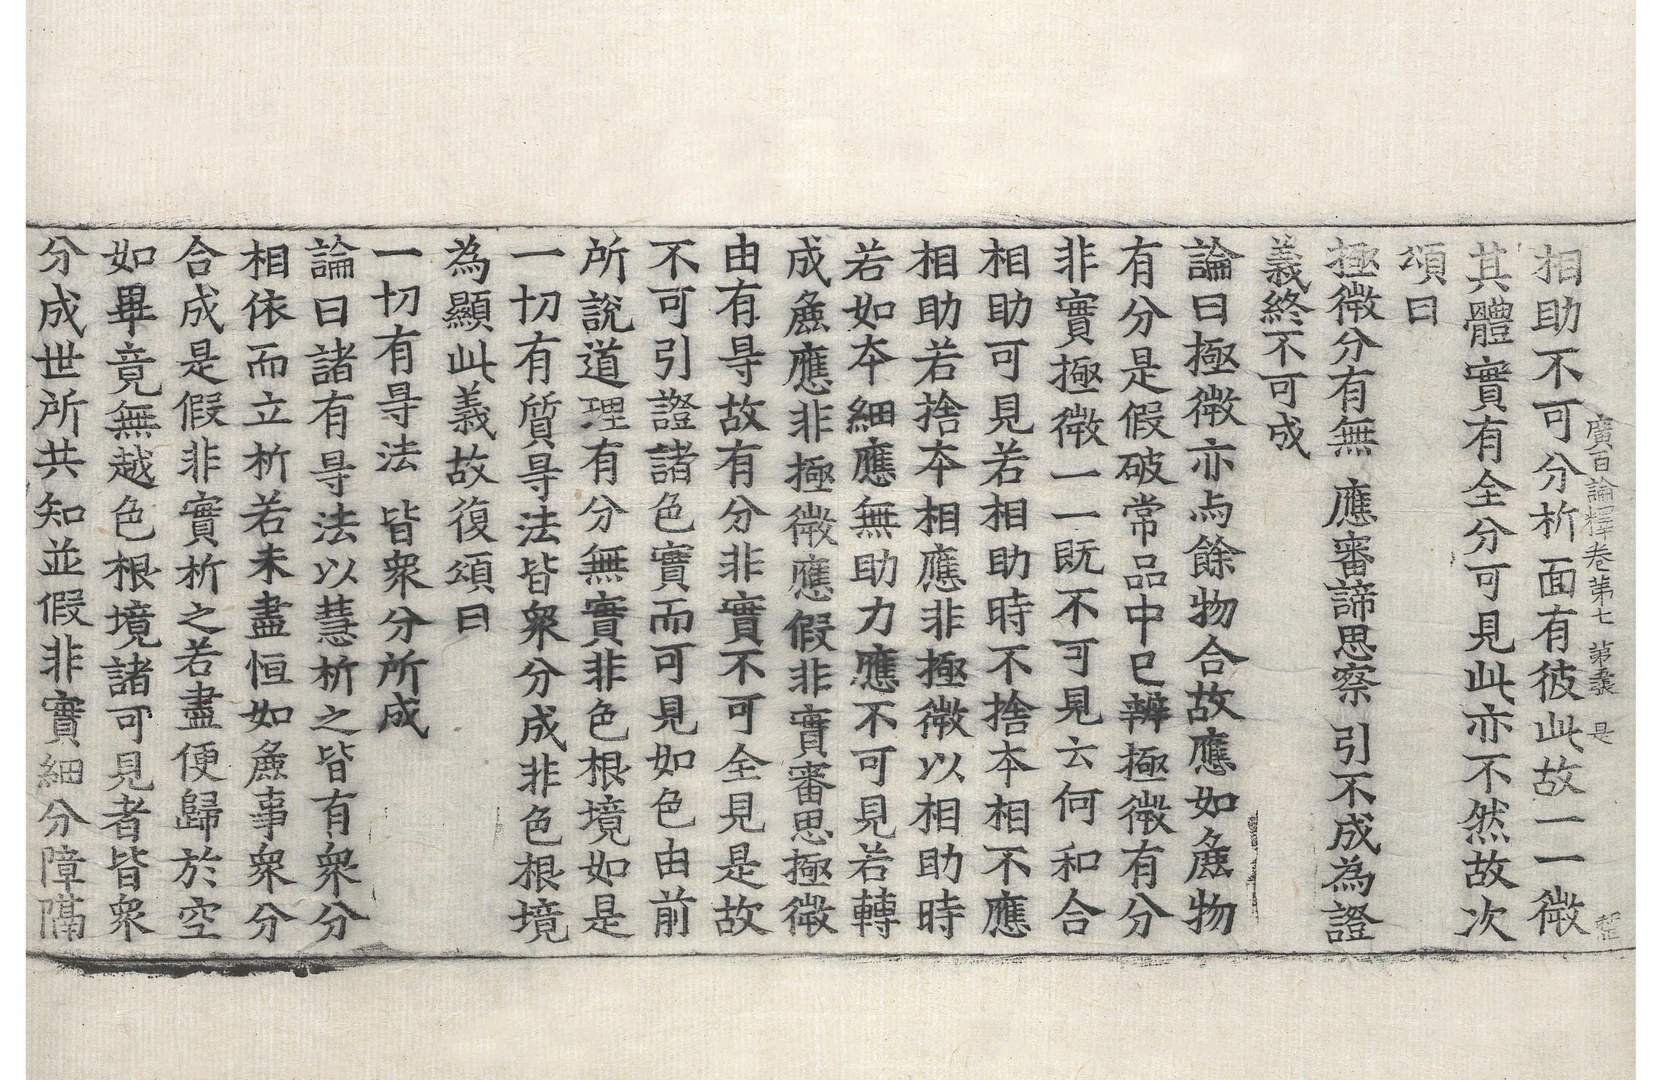 廣百論釋卷第七 第 張 是
相助不可分析面有彼此故一一微
其體實有全分可見此亦不然故次
頌曰
極微分有無 應審諦思察 引不成為證
義終不可成
論曰極微亦与餘物合故應如麁物
有分是假破常品中已辨極微有分
非實極微一一既不可見云何和合
相助可見若相助時不捨本相不應
相助若捨本相應非極微以相助時
若如本細應無助力應不可見若轉
成麁應非極微應假非實審思極微
由有㝵故有分非實不可全見是故
不可引證諸色實而可見如色由前
所說道理有分無實非色根境如是
一切有質㝵法皆衆分成非色根境
為顯此義故復頌曰
一切有㝵法 皆衆分所成
論曰諸有㝵法以慧析之皆有衆分
相依而立析若未盡恒如麁事衆分
合成是假非實析之若盡便歸於空
如畢竟無越色根境諸可見者皆衆
分成世所共知並假非實細分障隔